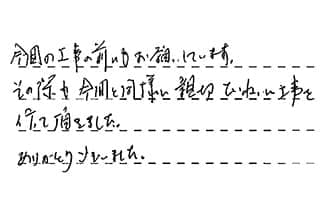 今回の工事の前にもお願いしています。
その際も今回と同様に親切ていねいに工事を
行って頂きました。
ありがとうございました。